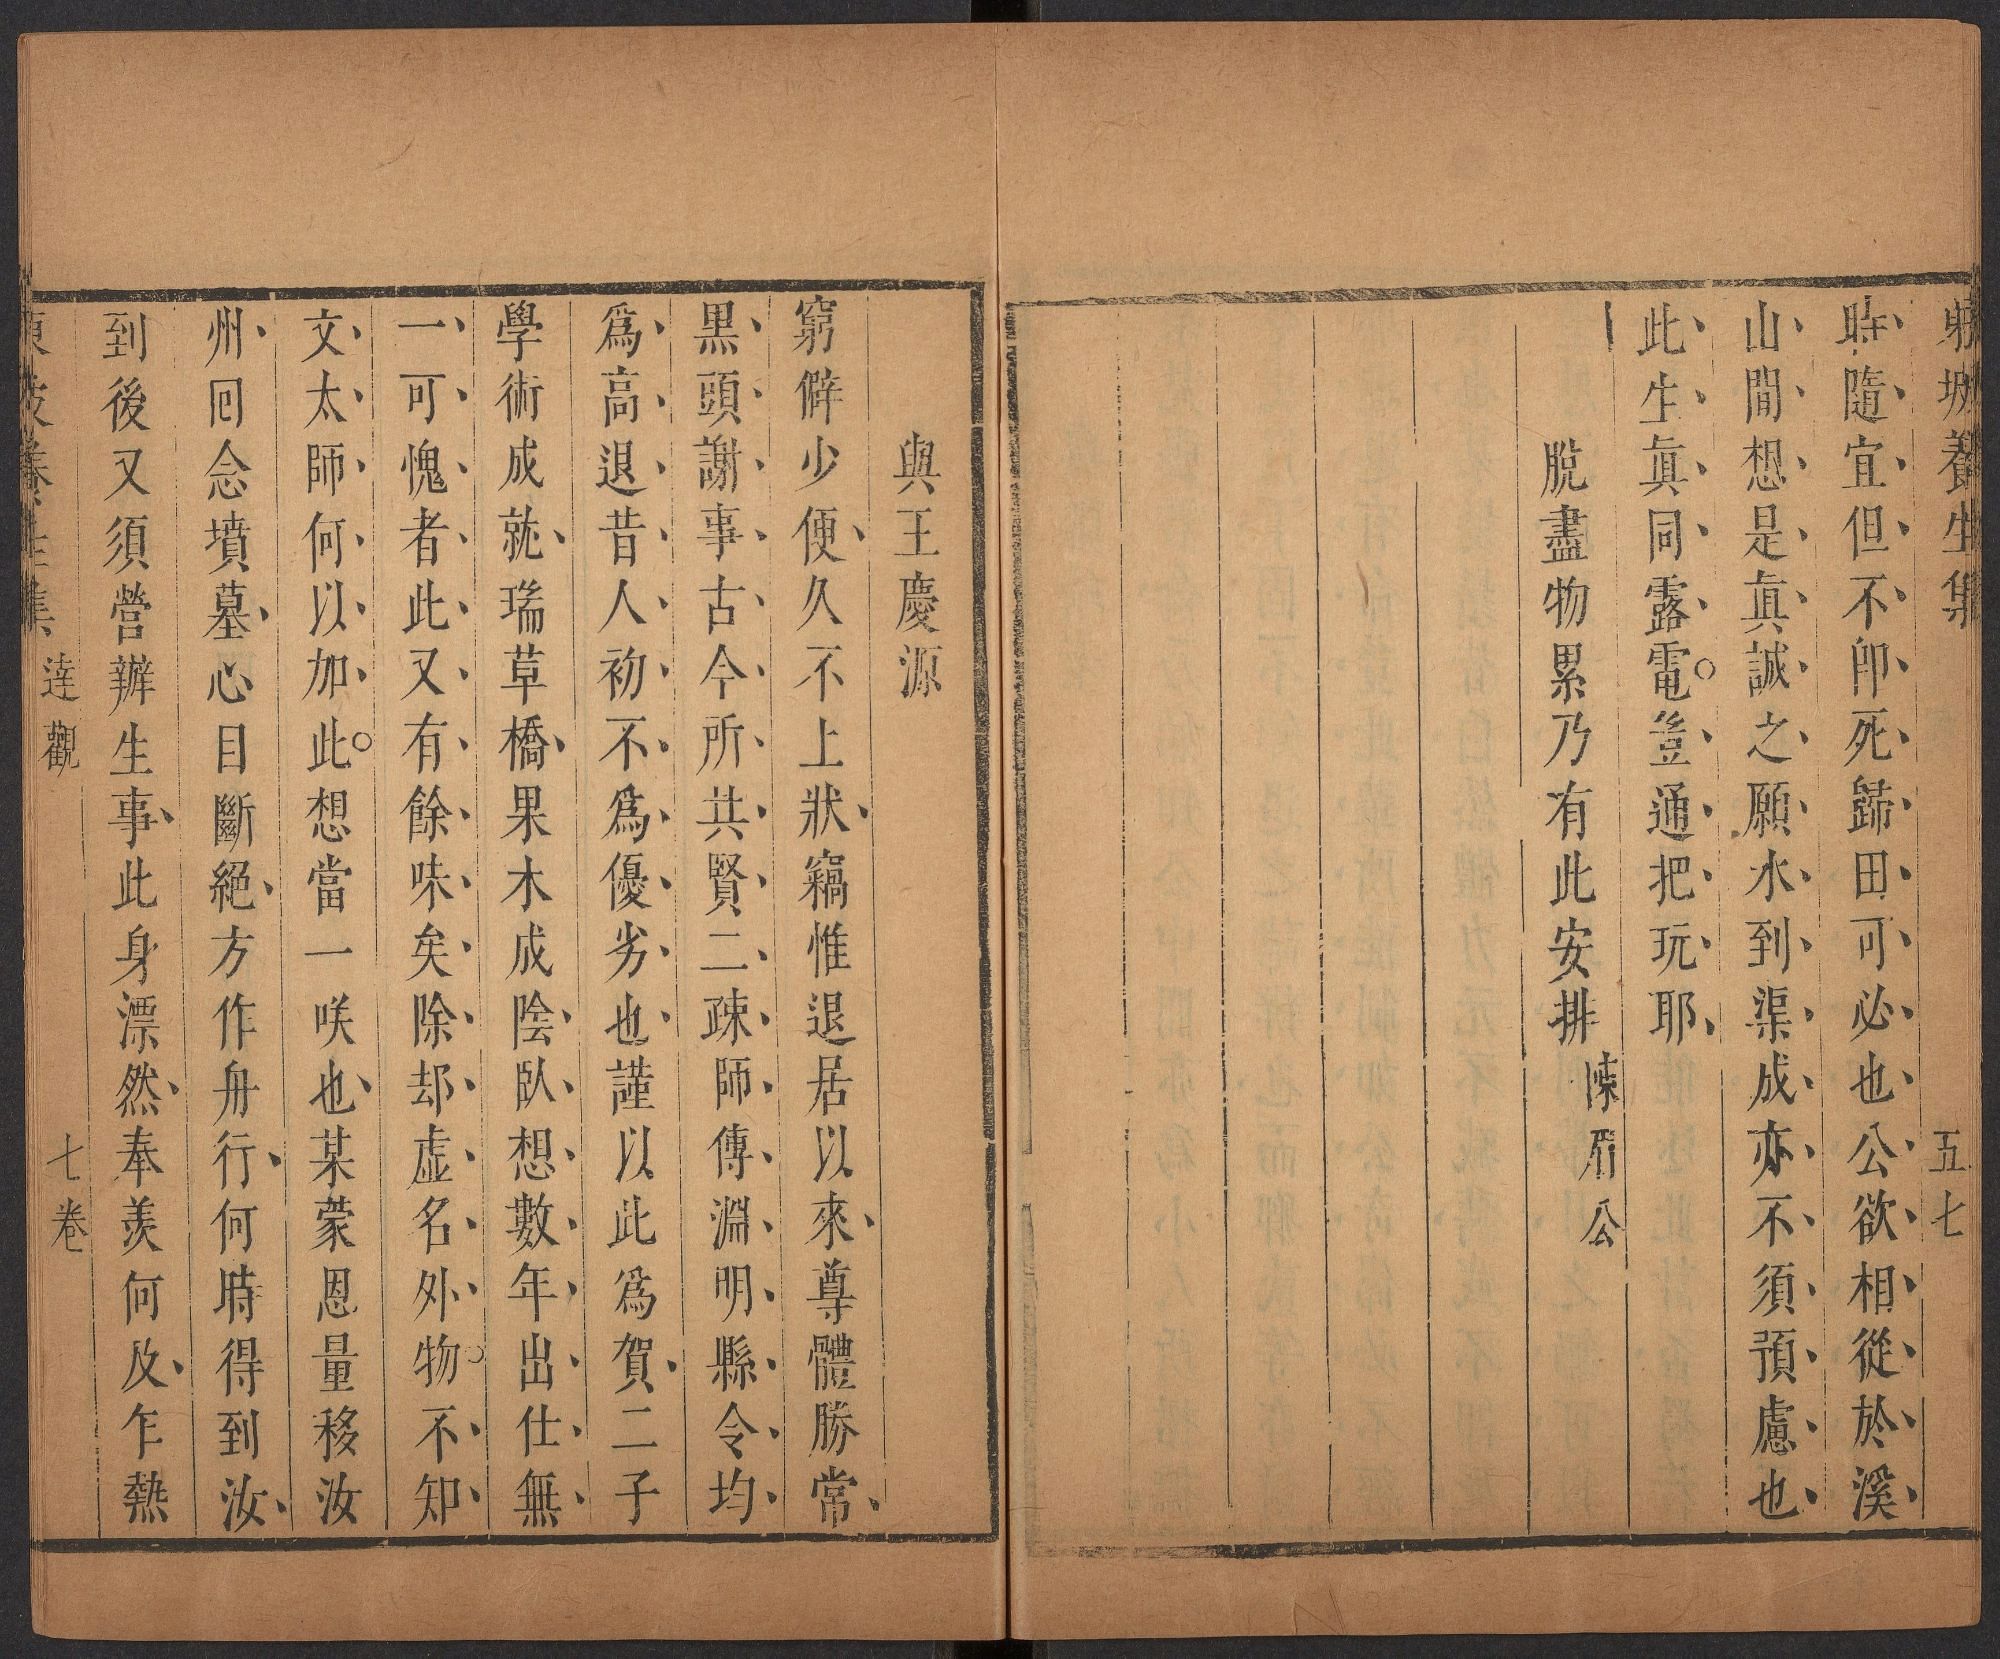 東坡養生集 五七
時隨宜但不卽死歸田可必也公欲相從於溪
山間想是眞誠之願水到渠成亦不須預慮也
此生眞同露電豈通把玩耶
脫盡物累乃有此安排 陳眉公
與王慶源
窮僻少便久不上狀竊惟退居以來尊體勝常
黑頭謝事古今所共賢二疎師傅淵明縣令均
爲高退昔人初不爲優劣也謹以此爲賀二子
學術成就瑞草橋果木成陰臥想數年出仕無
一可愧者此又有餘味矣除却虛名外物不知
文太師何以加此想當一咲也某蒙恩量移汝
州囘念墳墓心目斷絕方作舟行何時得到汝
到後又須營辦生事此身漂然奉羨何及乍熱
東坡養生集 達觀 七卷